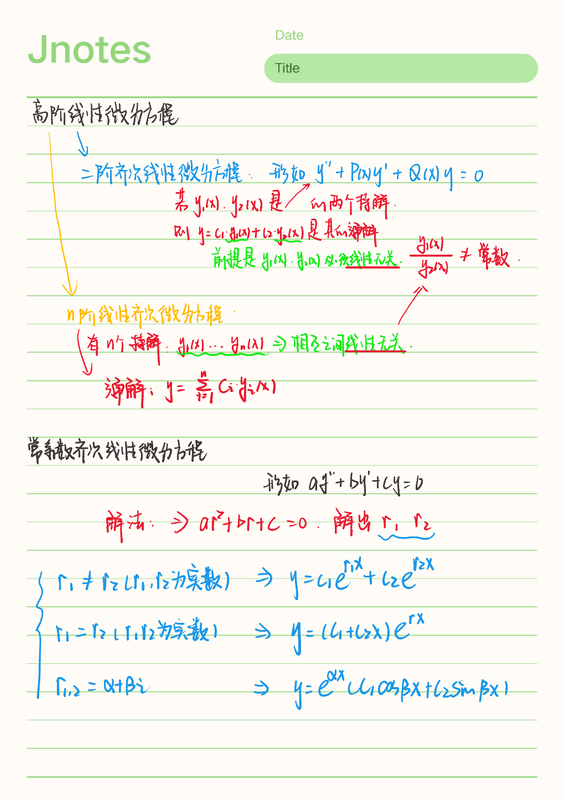 Jnotes
Date
Title
高阶线性微分方程
二阶齐次线性微分方程. 形如 y''+P(x)y'+Q(x)y=0
若 y₁(x). y₂(x) 是 的两个特解.
则 y=C₁y₁(x)+C₂y₂(x)是其的通解
前提是 y₁(x). y₂(x) 必须线性无关. y₁(x)/y₂(x) ≠ 常数.
n阶线性齐次微分方程.
有n个特解. y₁(x)...yₙ(x) ⇒ 相互之间线性无关.
通解: y = ∑ⁿᵢ₌₁ Cᵢyᵢ(x)
常系数齐次线性微分方程
形如 ay''+by'+cy=0
解法: ⇒ ar²+br+c=0. 解出 r₁ r₂
r₁≠r₂(r₁,r₂为实数) ⇒ y=C₁e^{r₁x}+C₂e^{r₂x}
r₁=r₂(r₁r₂为实数) ⇒ y=(C₁+C₂x)e^{rx}
r₁,₂=α+βi ⇒ y=e^{αx}(C₁cosβx+C₂sinβx)